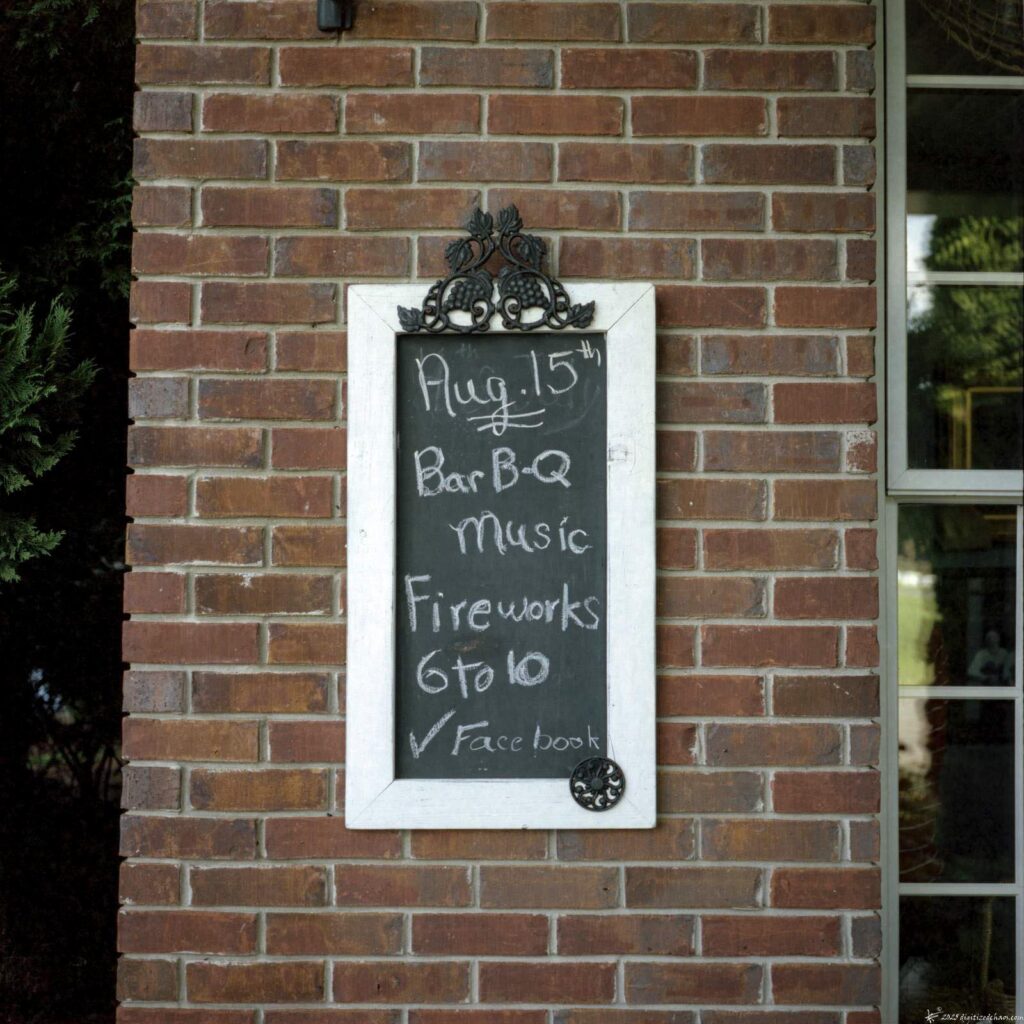 Aug. 15th
Bar B-Q
Music
Fireworks
6 to 10
✓ Facebook
2025 digitizedchaos.com